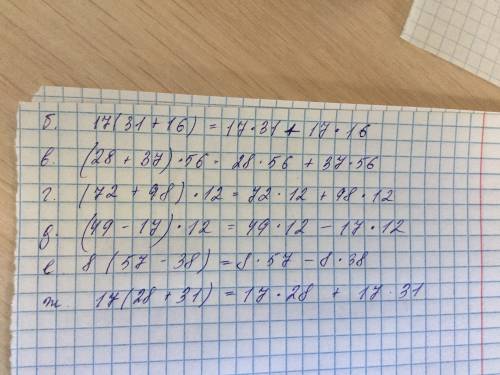 б. 17(31 + 16) = 17·31 + 17·16
в. (28 + 37)·56 = 28·56 + 37·56
г. (72 + 98)·12 = 72·12 + 98·12
д. (49 - 17)·12 = 49·12 - 17·12
е 8 (57 - 38) = 8·57 - 8·38
ж 17(28 + 31) = 17·28 + 17·31